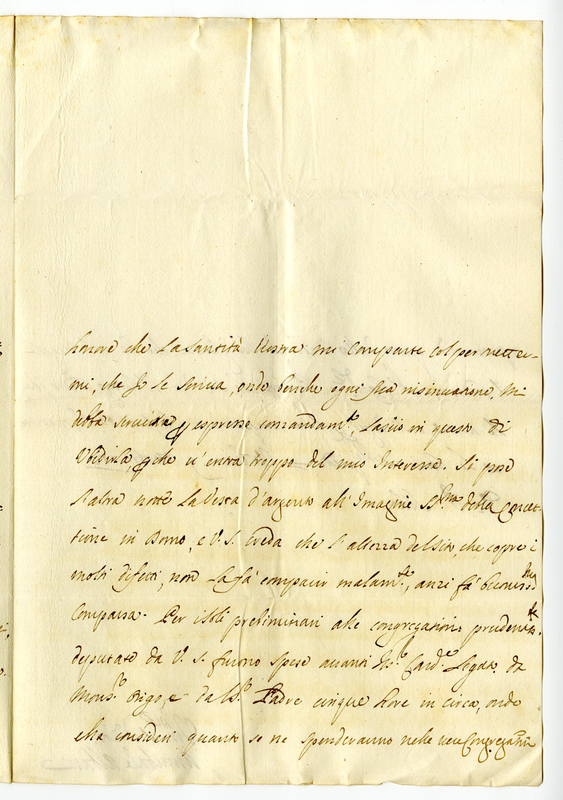 honore che La Santità Vostra mi Comparte col permetter-
mi, che Io le scriva, onde benche ogni sua insinuazione, mi
debba servire p espresso comandam.to, Lascio in questo di
Ubidirla, p che v'entra troppo del mio Interesse. Si pose
l'altra notte La Vesta d'argento all'Imagine SS.ma della Concet-
tione in Domo, e V. S. Creda che l'altezza del sito, che copre i
molti difetti, non La fà comparir malam.te, anzi fà bonis.ma
Comparsa. Per i soli preliminari alle congregationi prudentem.te
deputate da V. S. furono spese avanti il S.r Card.e Legato, da
Mons.r e da Padre cinque hore in circa, onde
ella consideri quanto se ne spenderanno nelle vere Congregationi